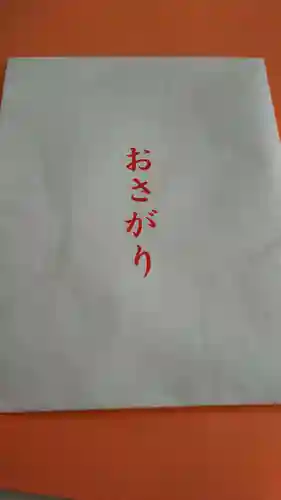 おさがり